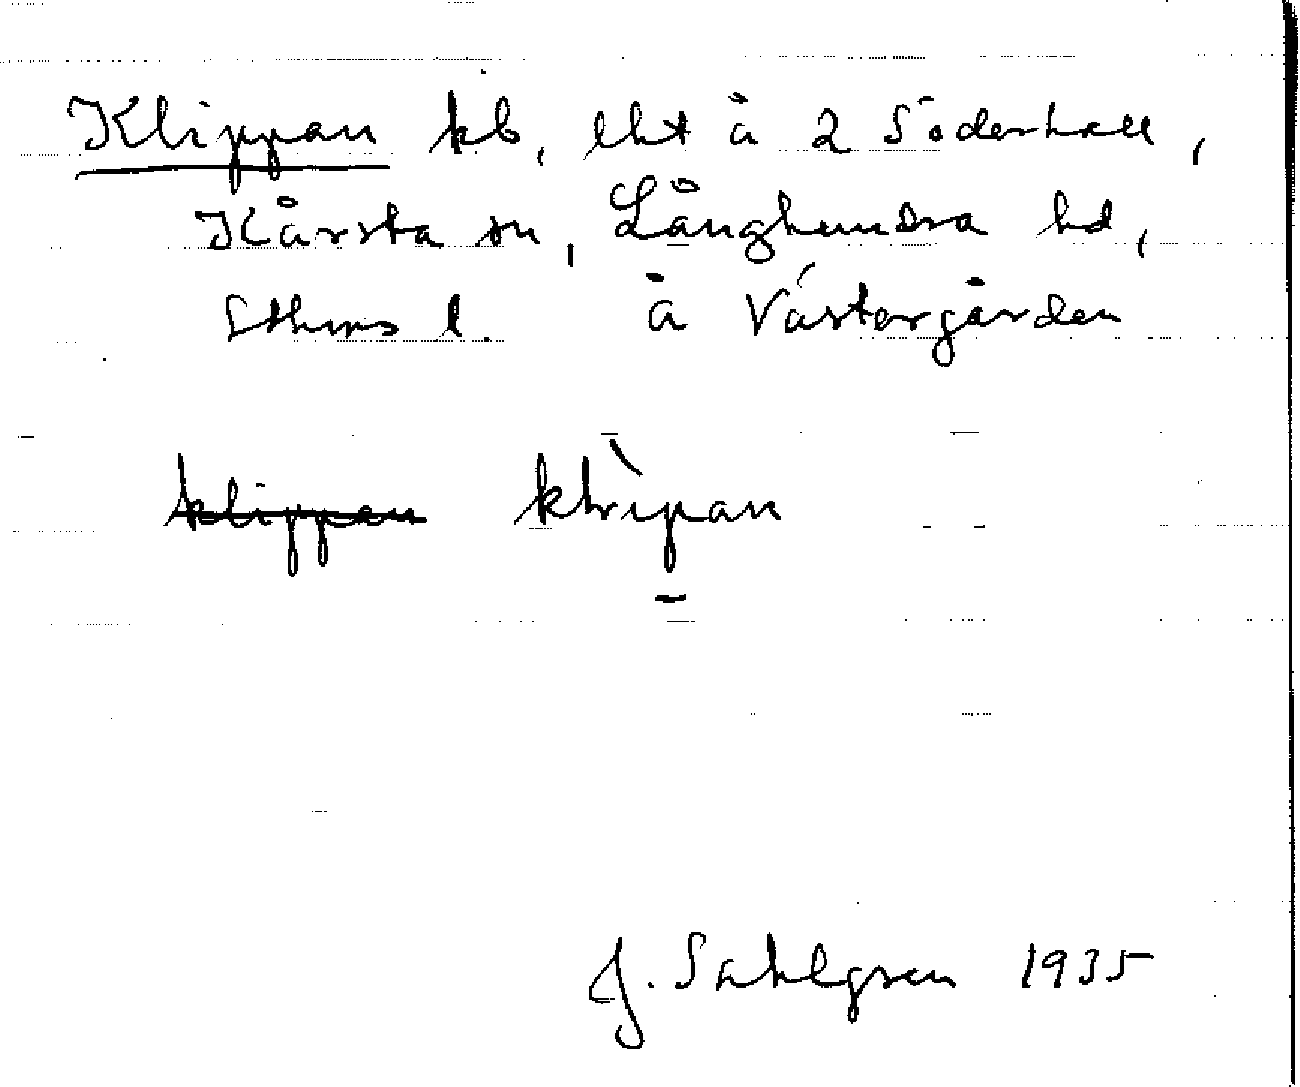 Klippan kb, lht å 2 Söderhall,
Kårsta sn, Långhundra hd,
Sthms l. å Västergården
klippen klìpan
J. Sahlgren 1935